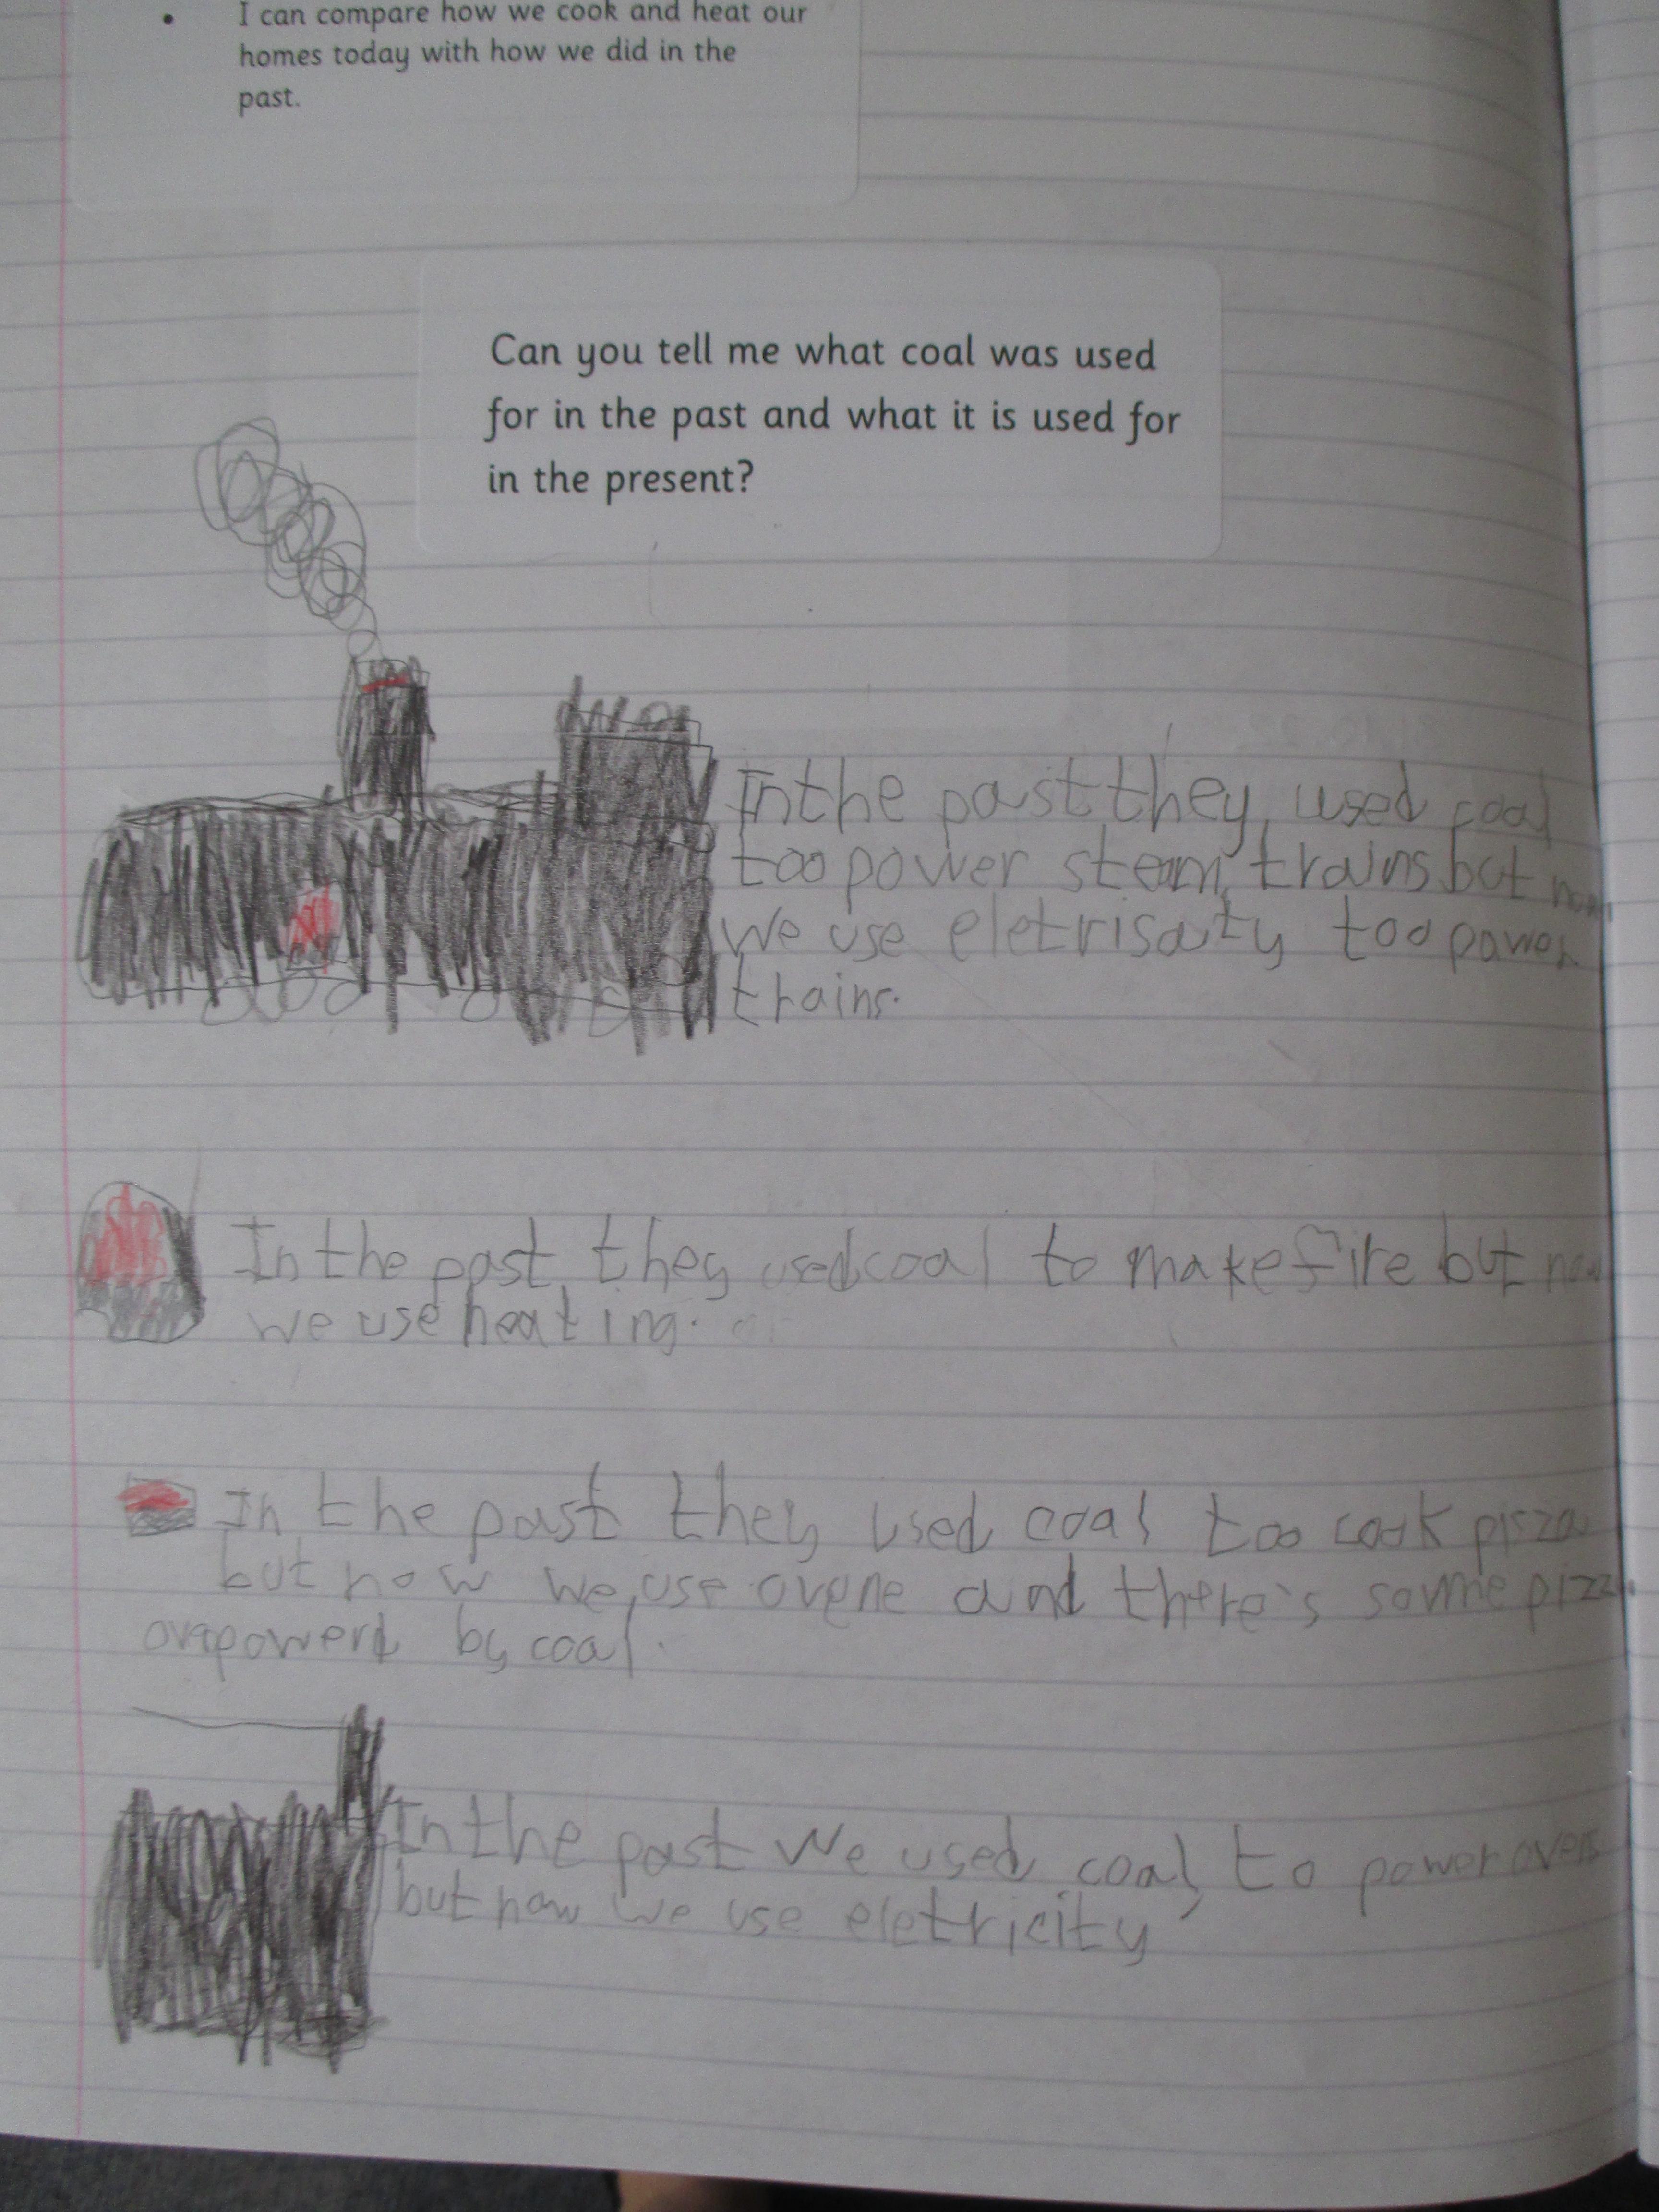 I can compare how we cook and heat our
homes today with how we did in the
past.
Can you tell me what coal was used
for in the past and what it is used for
in the present?
In the past they used coal
too power steam trains but now
we use eletrisaty too power
trains.
In the past they used coal to make fire but now
we use heating.
In the past they used coal too cook pizza
but now we use ovene and there's some pizz
powerd by coal.
In the past we used coal to power ovens
but now we use eletricity